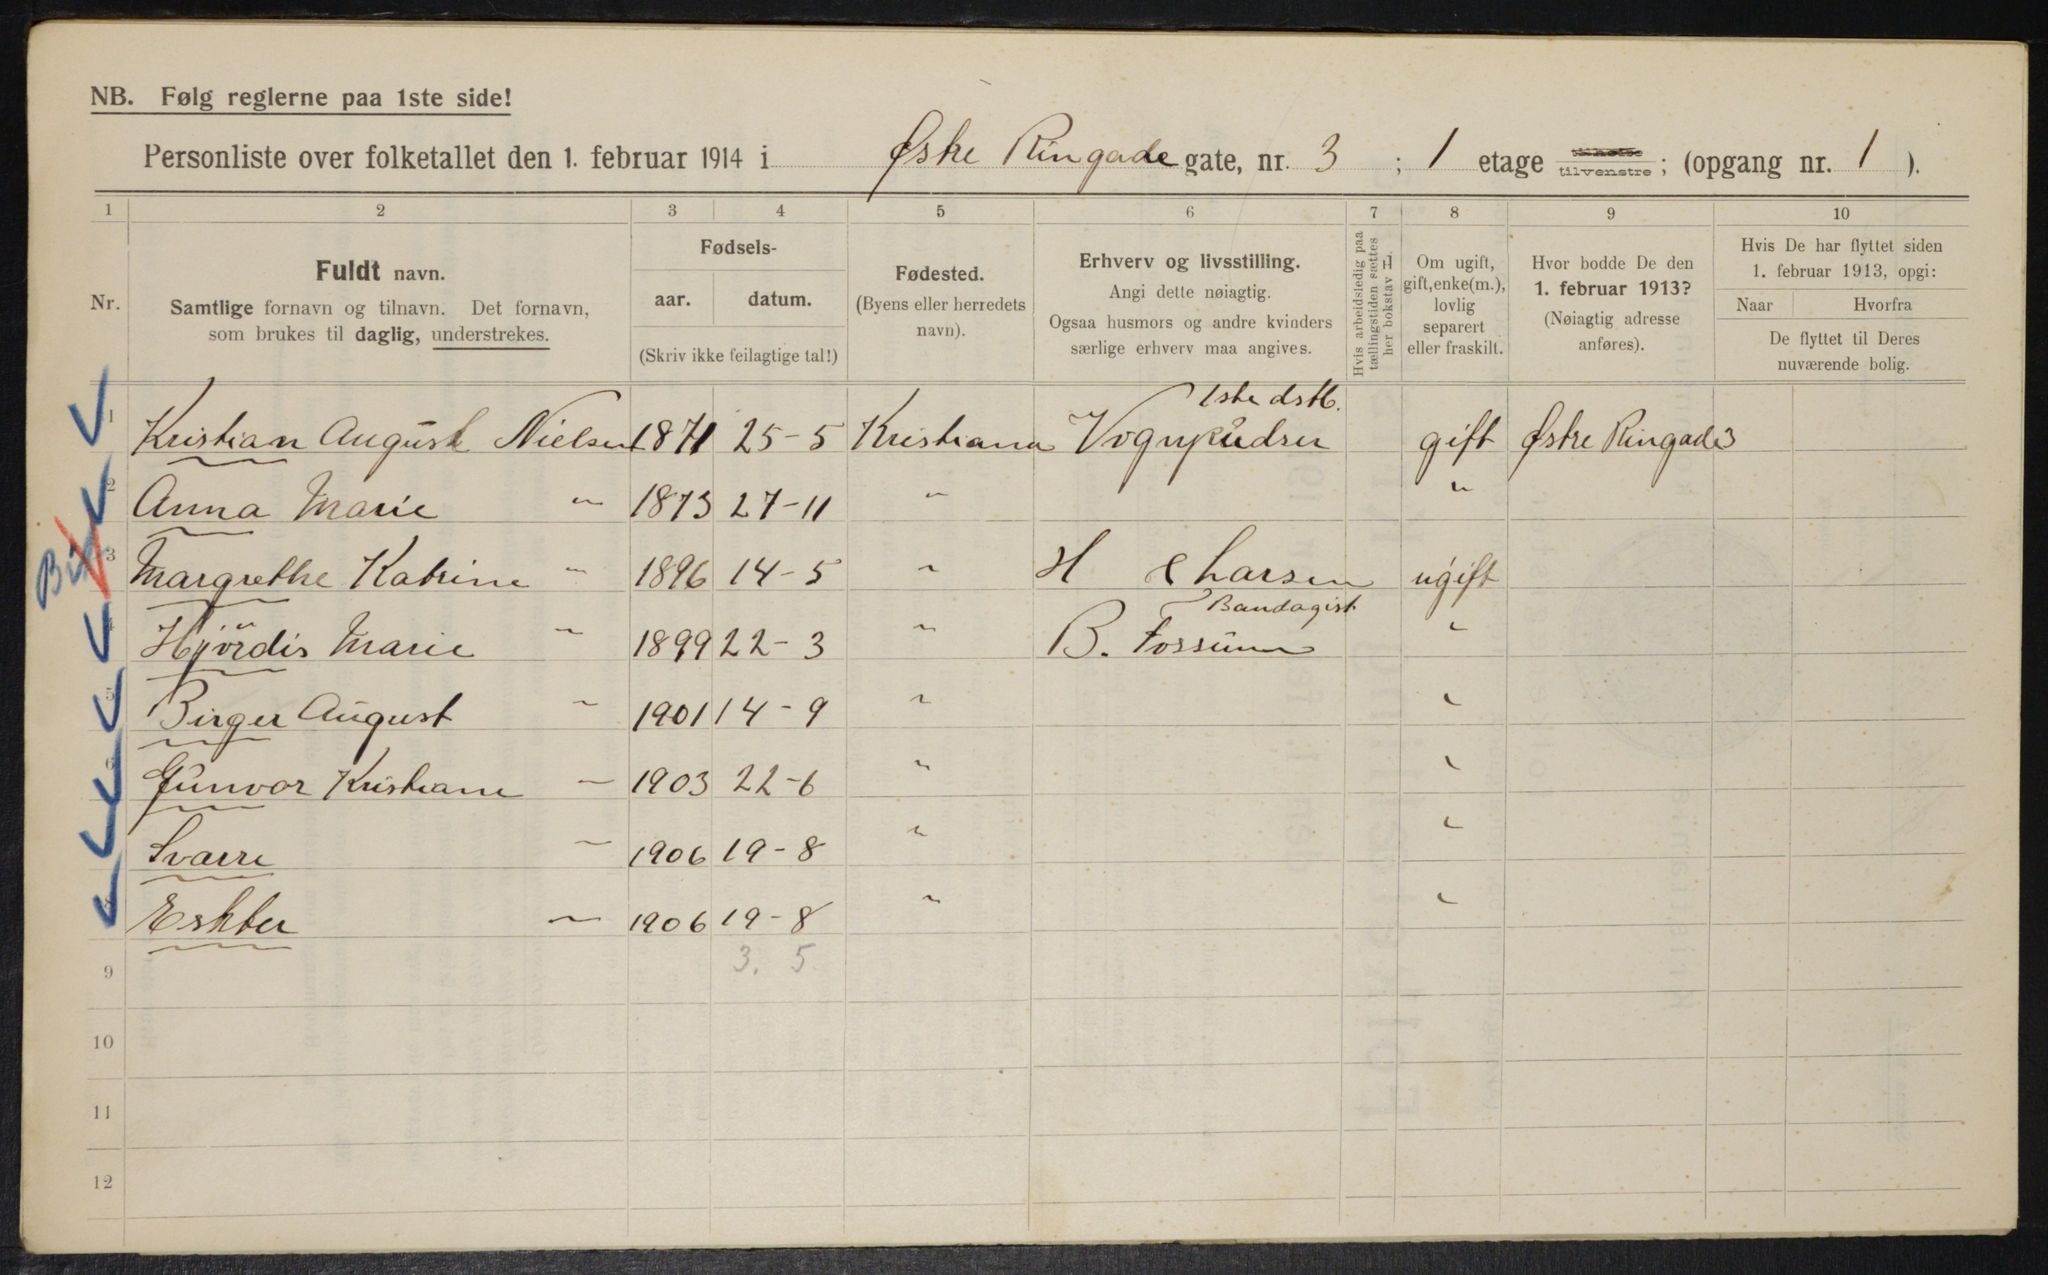 NB. Følg reglerne paa 1ste side!
Personliste over folketallet den 1. februar 1914 i Østre Ringade gate, nr. 3 ; 1 etage tilvenstre ; (opgang nr. 1 ).
1 2 3 4 5 6 7 8 9 10
Nr.
Fuldt navn.
Samtlige fornavn og tilnavn. Det fornavn,
som brukes til daglig, understrekes.
Fødsels-
aar. datum.
(Skriv ikke feilagtige tal!)
Fødested.
(Byens eller herredets
navn).
Erhverv og livsstilling.
Angi dette nøiagtig.
Ogsaa husmors og andre kvinders
særlige erhverv maa angives.
Hvis arbeidsledig paa
tællingstiden sættes
her bokstav L.
Om ugift,
gift, enke(m.),
lovlig
separert
eller fraskilt.
Hvor bodde De den
1. februar 1913?
(Nøiagtig adresse
anføres).
Hvis De har flyttet siden
1. februar 1913, opgi:
Naar Hvorfra
De flyttet til Deres
nuværende bolig.
1 Kristian August Nielsen 1871 25-5 Kristiana Vognpudser gift Østre Ringade 3
2 Anna Marie " 1873 27-11 " "
3 Margrethe Katrine " 1896 14-5 " H Larsen ugift
Bandagist
4 Hjördis Marie " 1899 22-3 " B. Fossum "
5 Birger August " 1901 14-9 " "
6 Gunvor Kristiane " 1903 22-6 " "
Svarre " 1906 19-8 " "
Eshter " 1906 19-8 " "
3. 5
9
10
11
12